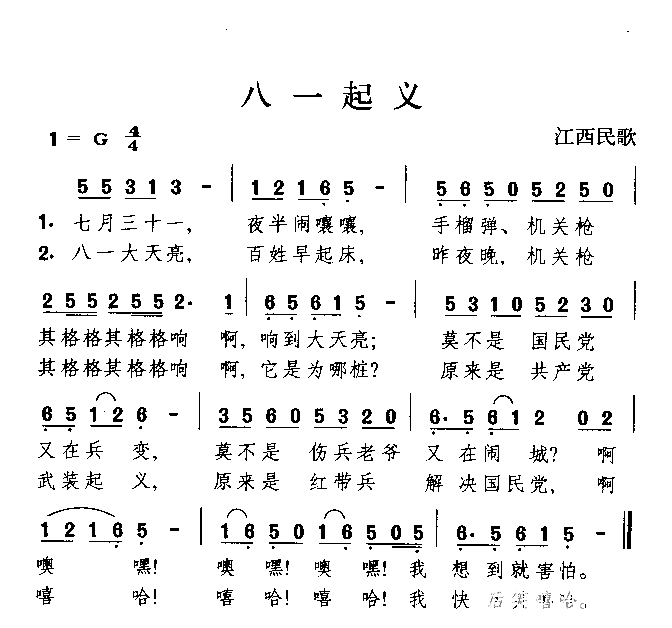 八一起义
1=G 4/4 江西民歌
5 5 3 1 3 - | 1 2 1 6 5 - | 5 6 5 0 5 2 5 0
1. 七月三十一， 夜半闹嚷嚷， 手榴弹、机关枪
2. 八一大天亮， 百姓早起床， 昨夜晚，机关枪
2 5 5 2 5 5 2· 1 | 6 5 6 1 5 - | 5 3 1 0 5 2 3 0
其格格其格格响 啊，响到大天亮； 莫不是 国民党
其格格其格格响 啊，它是为哪桩？ 原来是 共产党
6 5 1 2 6 - | 3 5 6 0 5 3 2 0 | 6· 5 6 1 2 0 2
又在兵 变， 莫不是 伤兵老爷 又在闹 城？ 啊
武装起 义， 原来是 红带兵 解决国民党，啊
1 2 1 6 5 - | 1 6 5 0 1 6 5 0 5 | 6· 5 6 1 5 -
噢 嘿！ 噢 嘿！噢 嘿！我 想到就害怕。
嘻 哈！ 嘻 哈！嘻 哈！我 快后嘻哈。